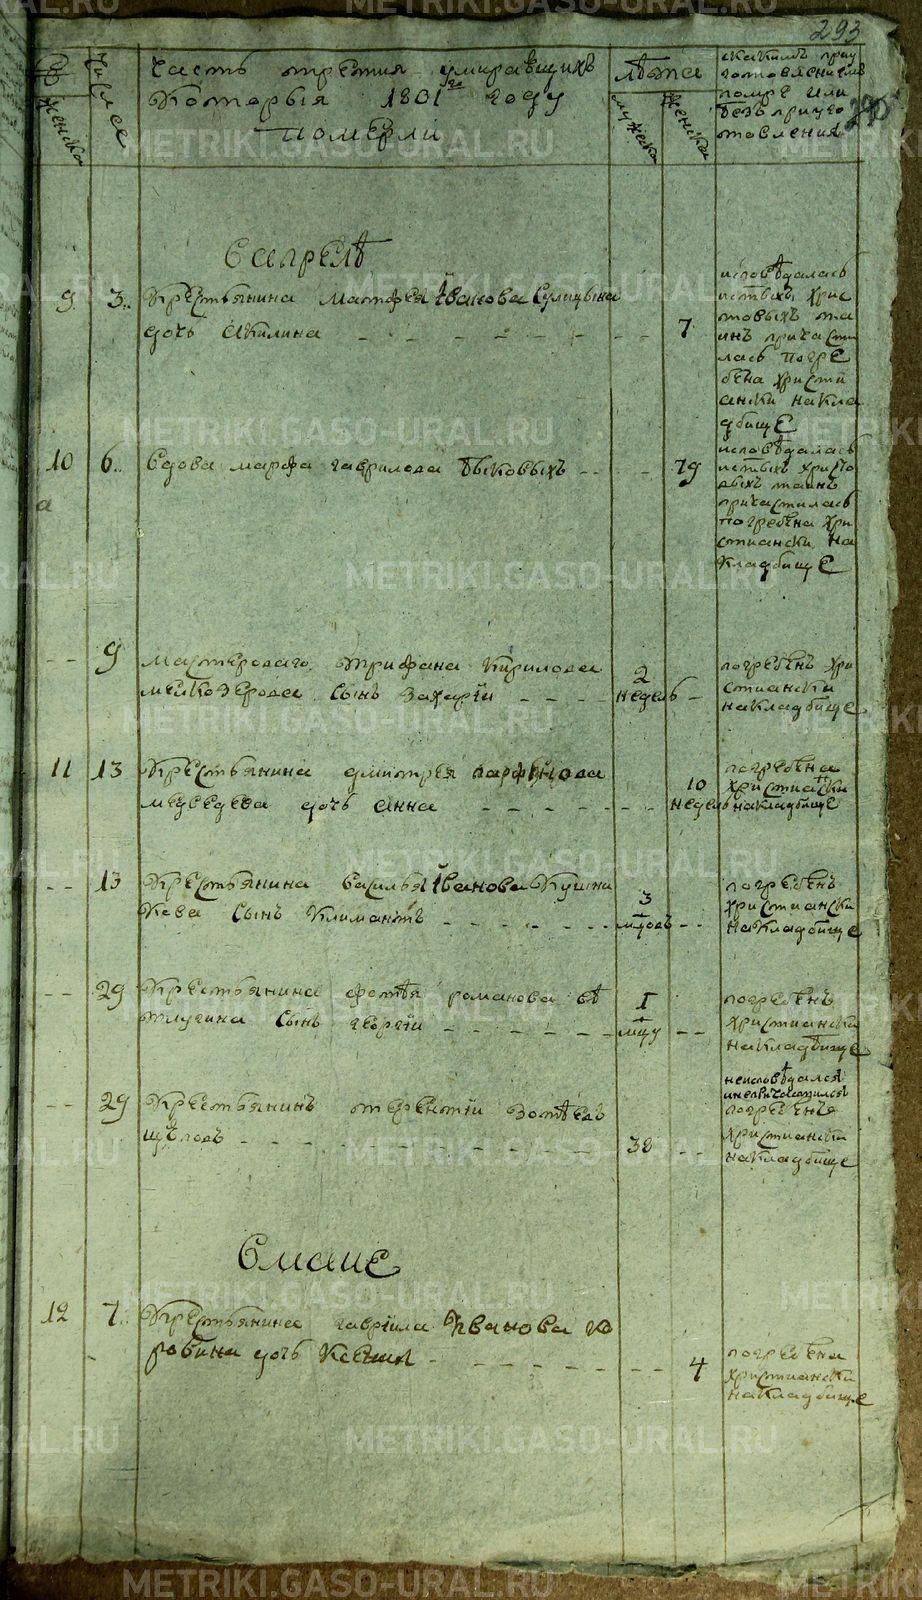 293
290
женска
число
часть третия умиравшихъ
Которыя 1801го году
померли
лѣта
мужеска
женска
скакимъ приу
готовлениемъ
помре или
безъ приуго
товления
Вапрелѣ
9 3 Крестьянина Матфея Iванова Сулицына
дочь Акилина 7
исповѣдалась
истыхъ хрис
товыхъ та
инъ причасти
лась погре
бена христи
ански накла
дбище
10 6 Вдова марфа гаврилова Быковыхъ 79
исповѣдалась
истыхъ христо
выхъ таинъ
причастилась
погребена хри
стиански на
кладбище
9 мастероваго трифана Кирилова
сынъ Захарiй 2
недель
погребенъ хри
стиански
накладбище
11 13 Крестьянина дмитрея парфенова
медведева дочь анна 10
недель
погребена
христиански
накладбище
13 Крестьянина василья Iванова Кушни
кова сынъ Климантъ 3
мцовъ
погребенъ
христиански
накладбище
29 Крестьянина фотѣя романова вѣ
тлугина сынъ георгiй 1
мцу
погребенъ
христиански
накладбище
29 Крестьянинъ терентiй Зотѣевъ
38
неисповѣдался
инепричастился
погребенъ
христиански
накладбище
Вмаие
12 7 Крестьянина гаврiила Iванова ко
робина дочь Ксения 4
погребена
христиански
накладбище
METRIKI.GASO-URAL.RU